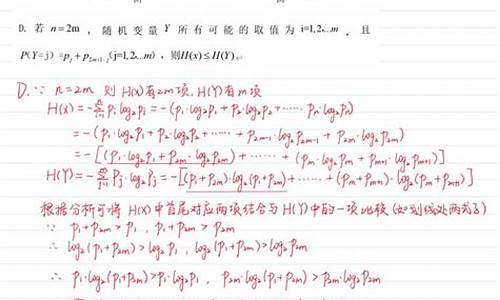 D. 若 n=2m ，随机变量 Y 所有可能的取值为 i=1,2,..m ，且
P(Y=j) =p_j+p_{2m+1-j}(j=1,2,..m) ，则H(x)≤H(Y)
D. ∵ n=2m 则 H(x)有2m项, H(Y)有m项
H(x)=-∑ Pᵢ·log₂Pᵢ = -(P₁·log₂P₁+P₂·log₂P₂+……Pₙ·log₂Pₙ)
= -(P₁·log₂P₁+P₂·log₂P₂+……+ P₂ₘ₋₁·log₂P₂ₘ₋₁ + P₂ₘ·log₂P₂ₘ)
= -[(P₁·log₂P₁+P₂ₘ·log₂P₂ₘ)+……+(Pₘ·log₂Pₘ+Pₘ₊₁·log₂Pₘ₊₁)]
H(Y)=-∑ Pⱼ·log₂Pⱼ=-[(P₁+P₂ₘ)·log₂(P₁+P₂ₘ)+……+(Pₘ+Pₘ₊₁)·log₂(Pₘ+Pₘ₊₁)]
根据分析可将 H(x)中首尾对应两项结合与H(Y)中的一项比较(如划线处两式)
∵ P₁+P₂ₘ>P₁ , P₁+P₂ₘ>P₂ₘ
∴ log₂(P₁+P₂ₘ)>log₂P₁ , log₂(P₁+P₂ₘ)>log₂P₂ₘ
∴ P₁·log₂(P₁+P₂ₘ)>P₁·log₂P₁ , P₂ₘ·log₂(P₁+P₂ₘ)>P₂ₘ·log₂P₂ₘ